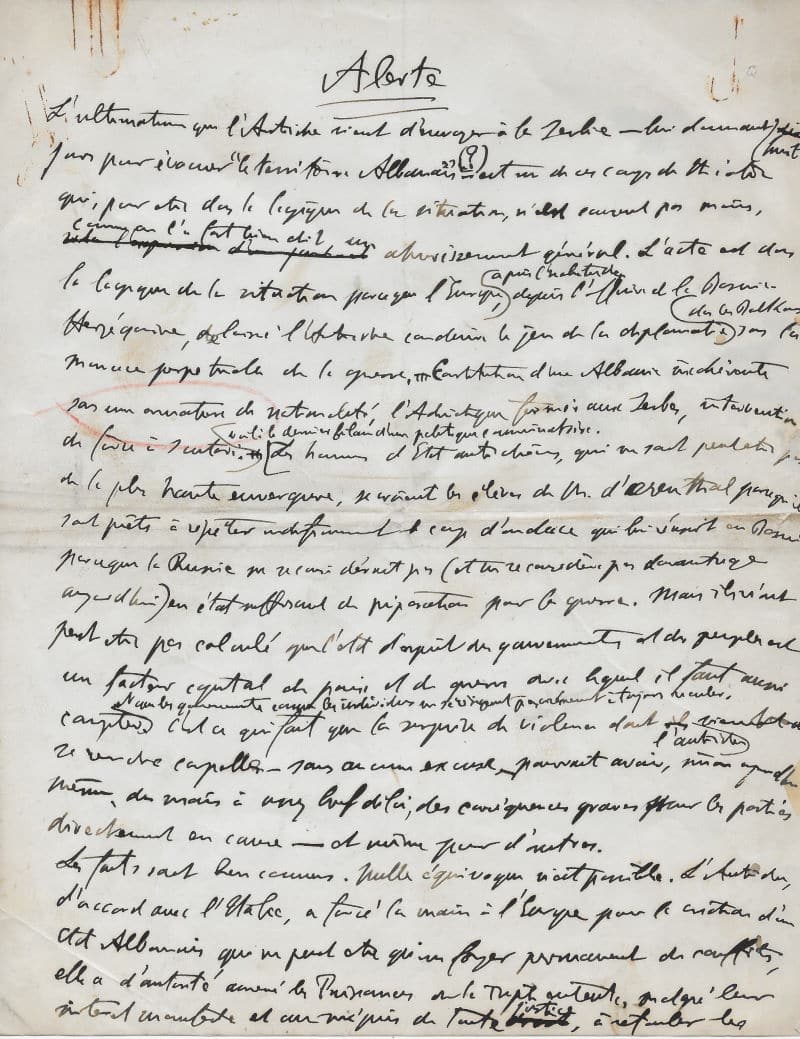 Alerte
L'ultimatum que l'Autriche vient d'envoyer à la Serbie — lui donnant huit
jours pour évacuer "le territoire Albanais" (?) est un de ces coups de théâtre
qui, pour être dans la logique de la situation, n'est souvent pas moins,
comme on l'a fort bien dit un
ahurissement général. L'acte est dans
la logique de la situation parce que l'Europe, depuis l'affaire de la Bosnie-
dans les Balkans
Herzégovine, a laissé l'Autriche conduire le jeu de la diplomatie sous la
menace perpétuelle de la guerre. Constitution d'une Albanie incohérente
sans une armature de nationalité, l'Adriatique fermée aux Serbes, intervention
voilà le dernier bilan d'une politique
de force à Scutari. Les hommes d'État autrichiens, qui ne sont peut-être pas
de la plus haute envergure, se croient les élèves de M. d'Ærenthal parce qu'ils
sont prêts à répéter indéfiniment le coup d'audace qui lui réussit en Bosnie
parce que la Russie ne se considérait pas (et ne se considère pas davantage
aujourd'hui) en état suffisant de préparation pour la guerre. Mais ils n'ont
peut-être pas calculé que l'état d'esprit des gouvernements et des peuples est
un facteur capital de paix et de guerre avec lequel il faut aussi
Ni les gouvernements comme les individus ne se résignent à toujours reculer.
compter. C'est ce qui fait que la surprise de violence dont
l'Autriche
se rendre coupable — sans aucune excuse — pourrait avoir, sinon aujourd'hui
même, du moins à assez bref délai, des conséquences graves pour les parties
directement en cause — et même pour d'autres.
Les faits sont bien connus. Nulle équivoque n'est possible. L'Autriche,
d'accord avec l'Italie, a forcé la main à l'Europe pour la création d'un
état Albanais qui ne peut être qu'un foyer permanent de conflits,
elle a d'autorité amené les Puissances de la Triple entente, malgré leur
intérêt manifeste et au mépris de toute justice, à refouler les